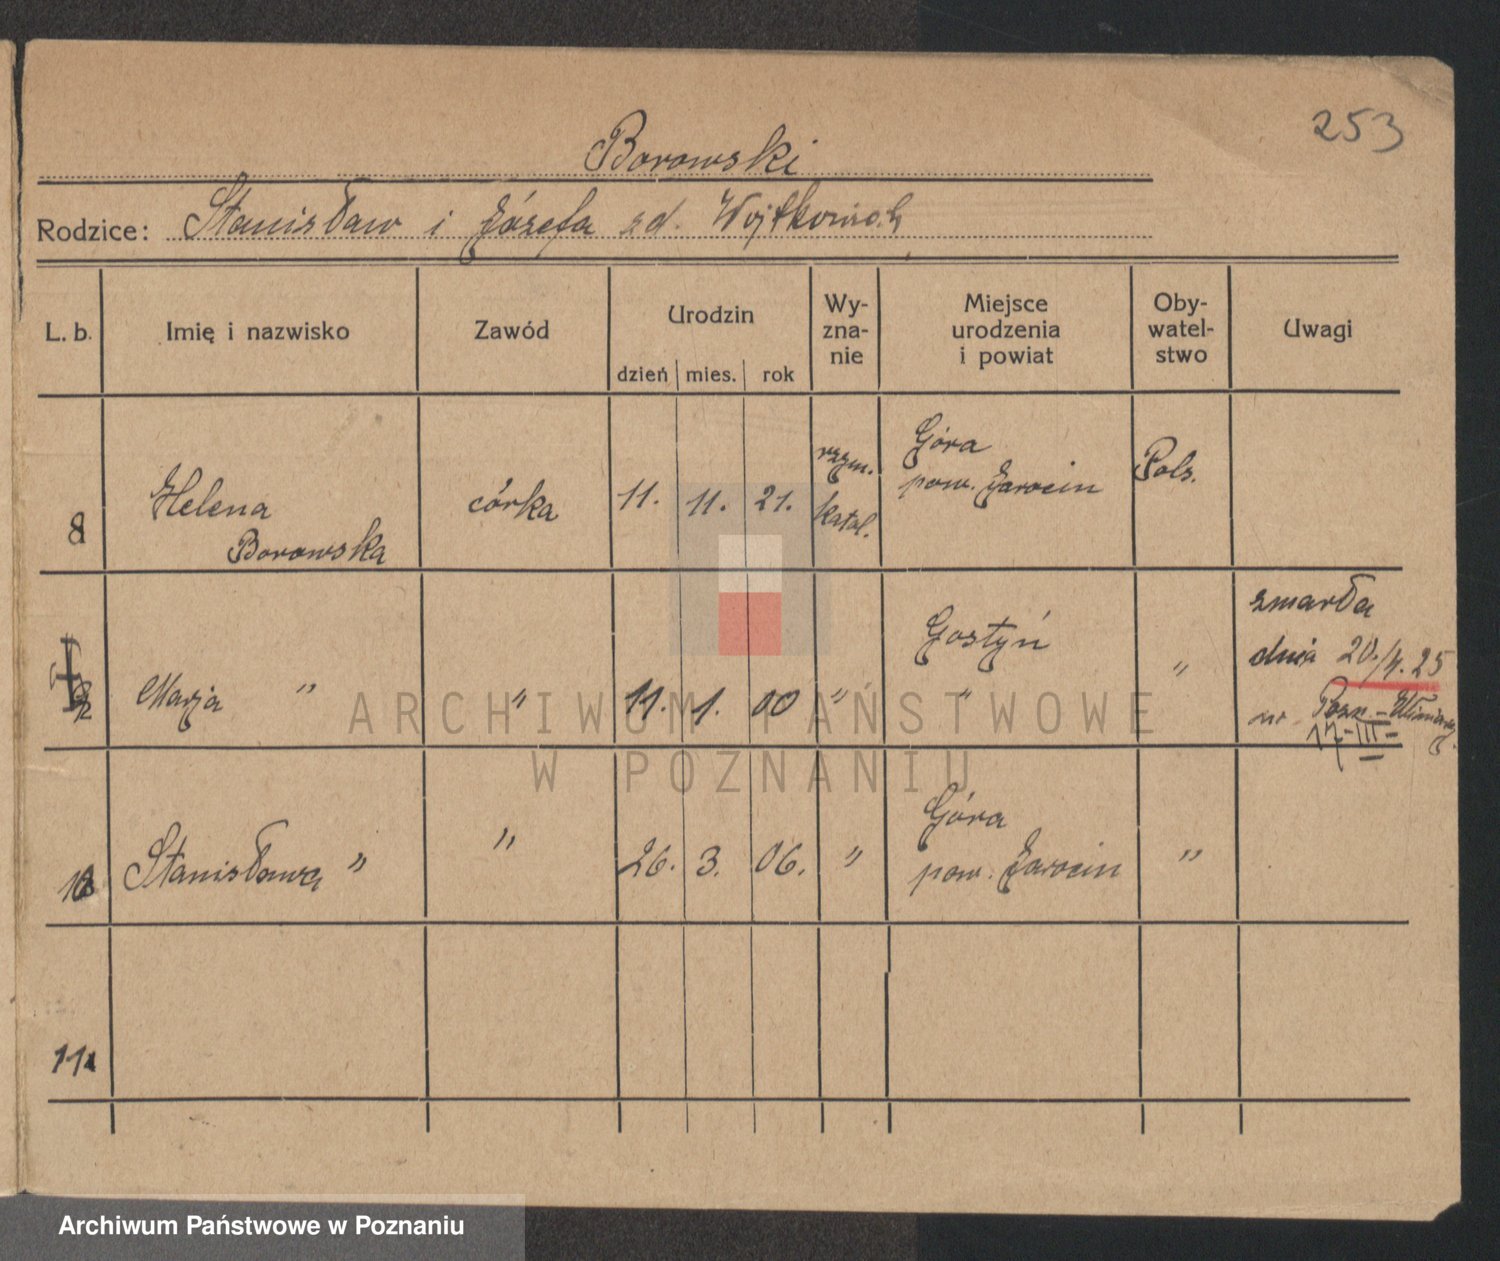 253
Borowski
Rodzice: Stanisław i Józefa zd. Wojtkowiak
L. b. Imię i nazwisko Zawód Urodzin Wy-zna-nie Miejsce urodzenia i powiat Oby-watel-stwo Uwagi
dzień mies. rok
8 Helena Borowska córka 11. 11. 21. rzym. katol. Góra pow. Jarocin Pols.
Marja " " 11. 1. 00 " Gostyń " " zmarła dnia 20./4. 25 w Pozn.-
17-III-
10 Stanisława " " 26. 3. 06. " Góra pow. Jarocin "
11
ARCHIWUM PAŃSTWOWE
W POZNANIU
Archiwum Państwowe w Poznaniu